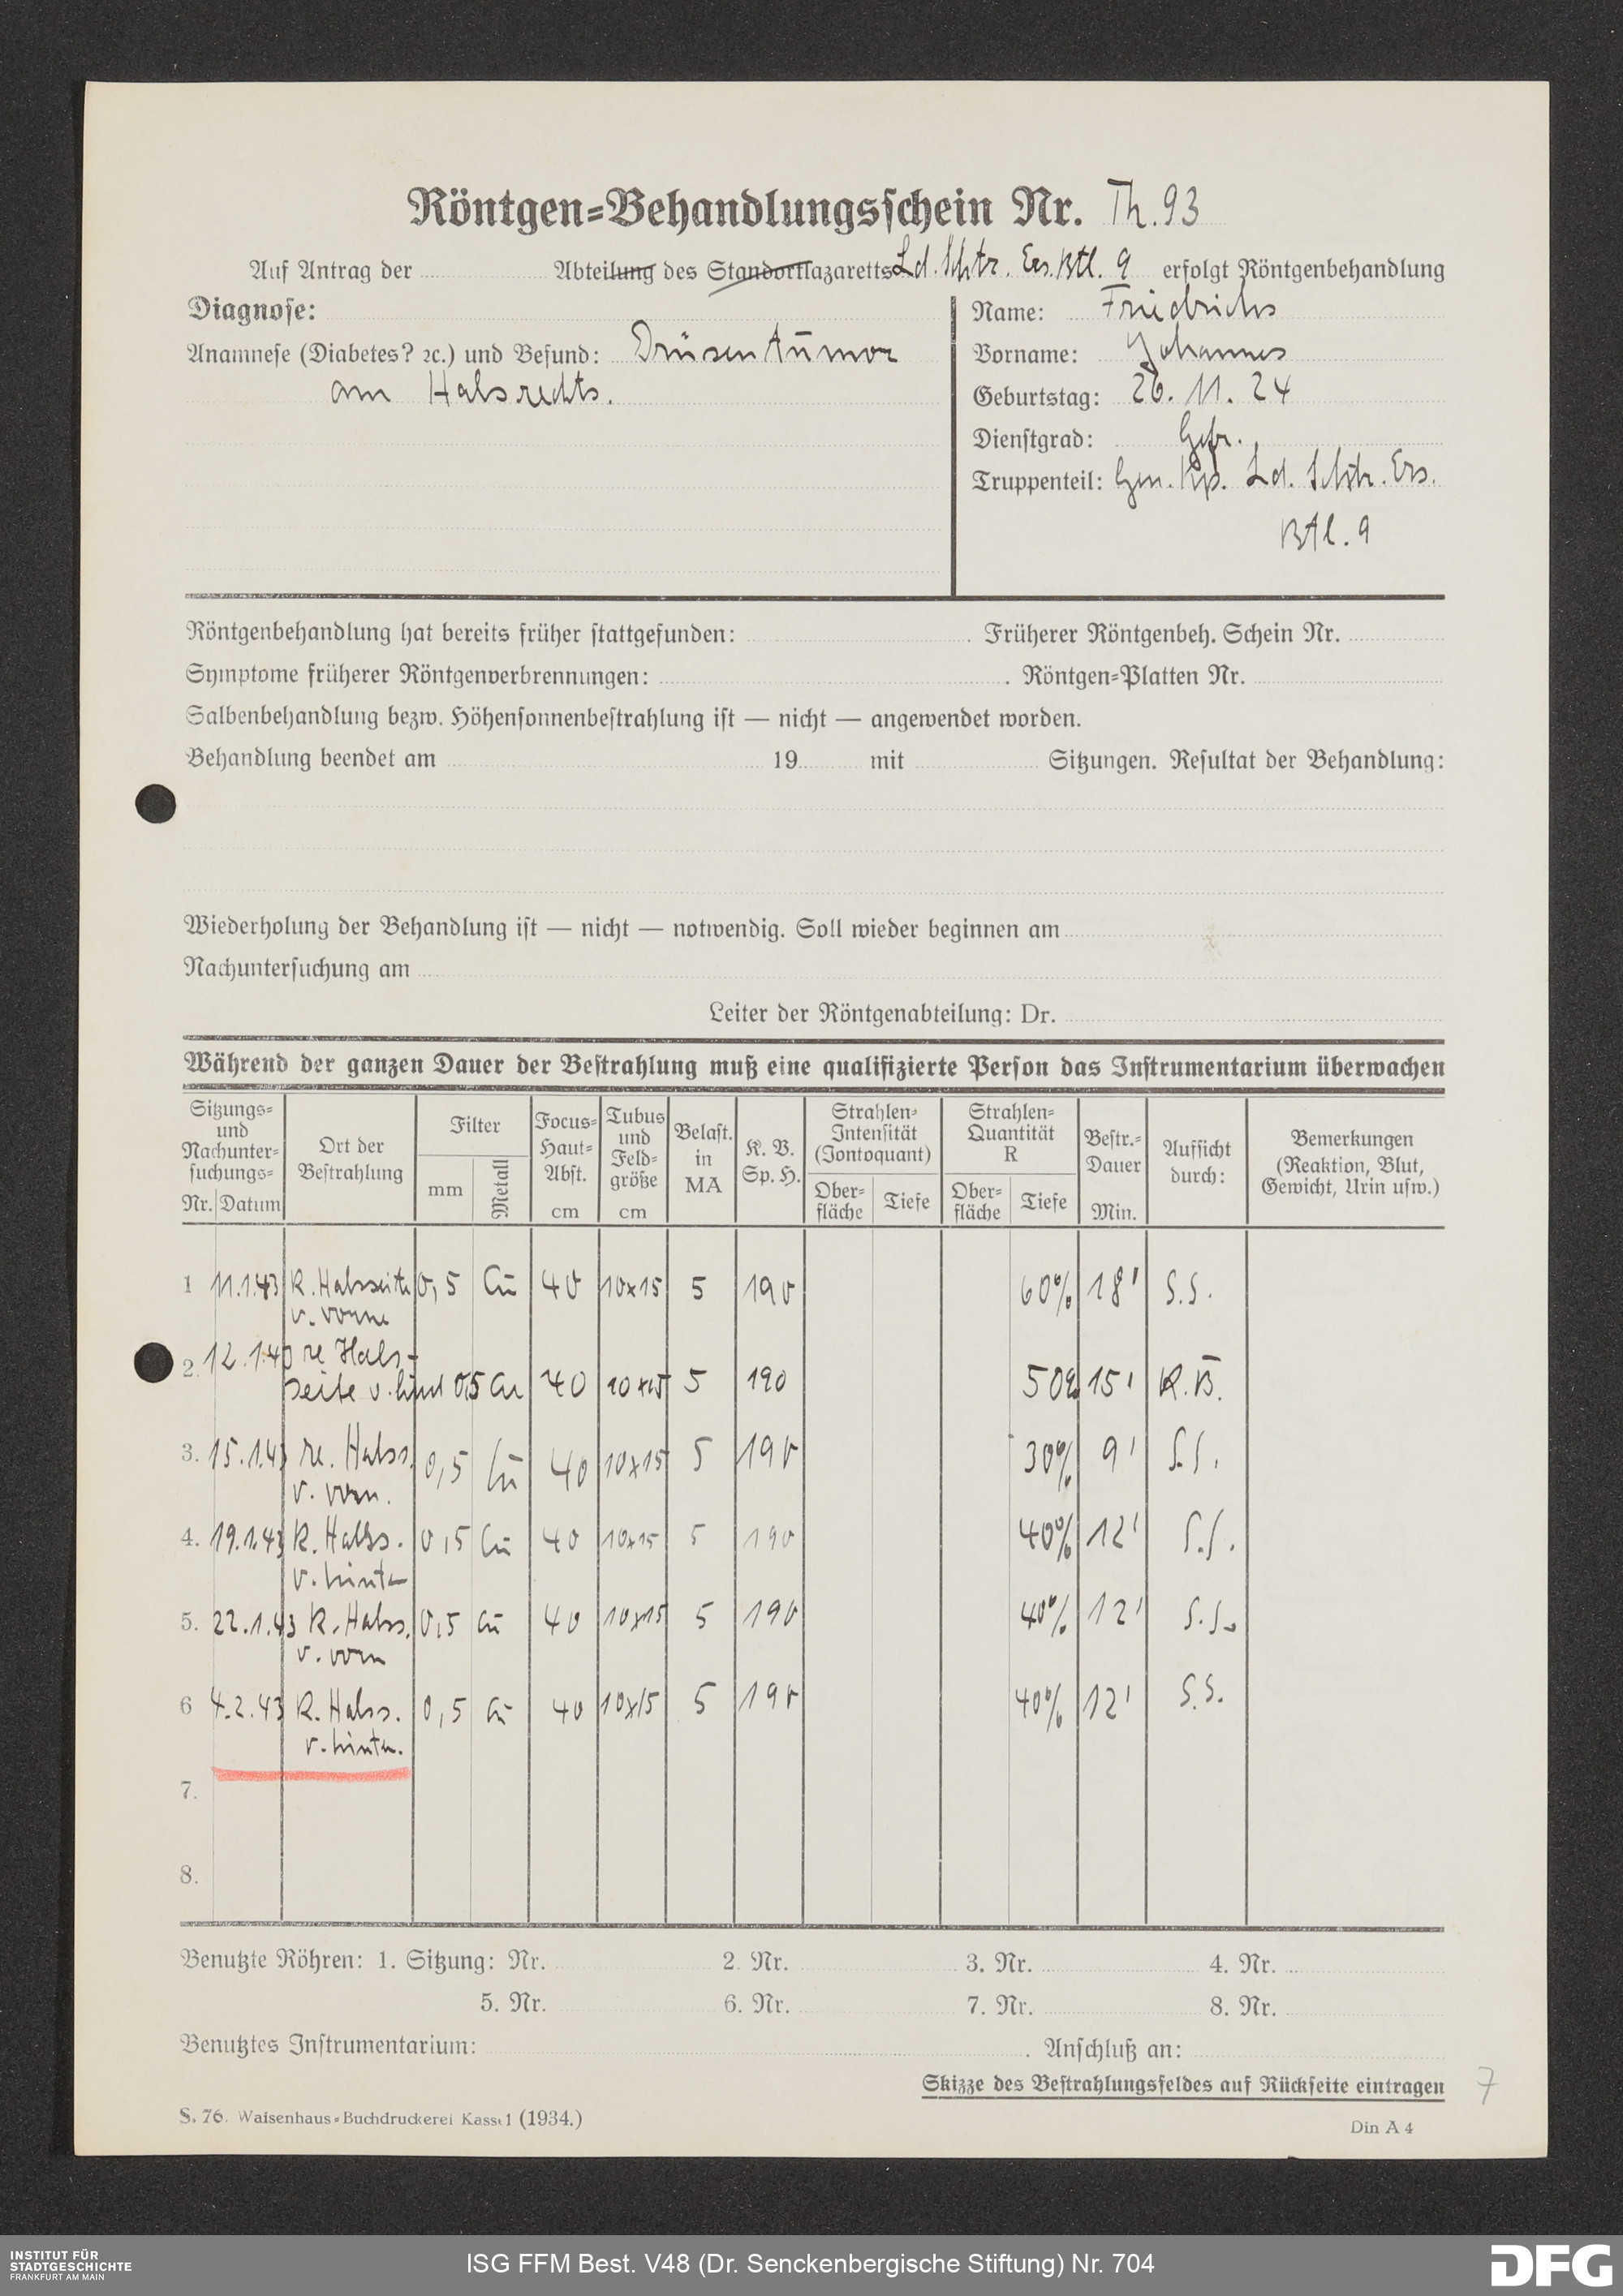 Röntgen-Behandlungsschein Nr. Th. 93
Auf Antrag der Abteilung des Standortlazaretts Ld. Schtz. Ers. Btl. 9 erfolgt Röntgenbehandlung
Diagnose:
Anamnese (Diabetes? ꝛc.) und Befund: Drüsentumor
am Hals rechts.
Name: Friedrichs
Vorname: Johannes
Geburtstag: 26. 11. 24
Dienstgrad: Gefr.
Truppenteil: Gen. Kp. Ld. Schtz. Ers.
Btl. 9
Röntgenbehandlung hat bereits früher stattgefunden: Früherer Röntgenbeh. Schein Nr.
Symptome früherer Röntgenverbrennungen: . Röntgen-Platten Nr.
Salbenbehandlung bezw. Höhensonnenbestrahlung ist — nicht — angewendet worden.
Behandlung beendet am 19 mit Sitzungen. Resultat der Behandlung:
Wiederholung der Behandlung ist — nicht — notwendig. Soll wieder beginnen am
Nachuntersuchung am
Leiter der Röntgenabteilung: Dr.
Während der ganzen Dauer der Bestrahlung muß eine qualifizierte Person das Instrumentarium überwachen
Sitzungs- und Nachunter- suchungs- Nr. Datum
Ort der Bestrahlung
Filter mm Metall
Focus- Haut- Abst. cm
Tubus und Feld- größe cm
Belast. in MA
K. V. Sp. H.
Strahlen- Intensität (Jontoquant) Ober- fläche Tiefe
Strahlen- Quantität R Ober- fläche Tiefe
Bestr.- Dauer Min.
Aufsicht durch:
Bemerkungen (Reaktion, Blut, Gewicht, Urin usw.)
1 11.1.43 R. Halsseite 0,5 Cu 40 10x15 5 190 60% 18' S.S.
v. vorne
2. 12.1.43 re Hals-
seite v. hint 0,5 Cu 40 10x15 5 190 50% 15' K.B.
3. 15.1.43 re. Halss. 0,5 Cu 40 10x15 5 190 30% 9' S.S.
v. vorn.
4. 19.1.43 R. Halss. 0,5 Cu 40 10x15 5 190 40% 12' S.S.
v. hinten
5. 22.1.43 R. Halss. 0,5 Cu 40 10x15 5 190 40% 12' S.S.
v. vorn
6 4.2.43 R. Halss. 0,5 Cu 40 10x15 5 190 40% 12' S.S.
v. hinten.
7.
8.
Benutzte Röhren: 1. Sitzung: Nr. 2. Nr. 3. Nr. 4. Nr.
5. Nr. 6. Nr. 7. Nr. 8. Nr.
Benutztes Instrumentarium: . Anschluß an:
Skizze des Bestrahlungsfeldes auf Rückseite eintragen
7
S. 76. Waisenhaus-Buchdruckerei Kassel (1934.)
Din A 4
INSTITUT FÜR
STADTGESCHICHTE
FRANKFURT AM MAIN
ISG FFM Best. V48 (Dr. Senckenbergische Stiftung) Nr. 704
DFG